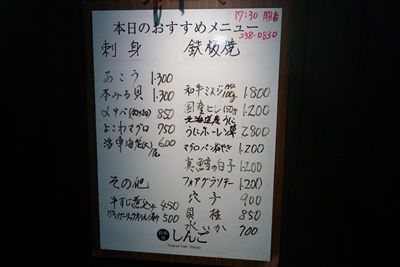 本日のおすすめメニュー
17:30 開店
238-0830
刺身
あこう 1300
本みる貝 1300
850
よこわマグロ 750
600
その他
牛すじ煮込み 450
500
鉄板焼
和牛ミスジ 100g 1800
国産ヒレ 150g 1200
北海道産うに
うにホーレン草 2800
マグロ 1200
真鱈の白子 1200
フォアグラソテー 1200
穴子 900
貝柱 850
水いか 700
しんご